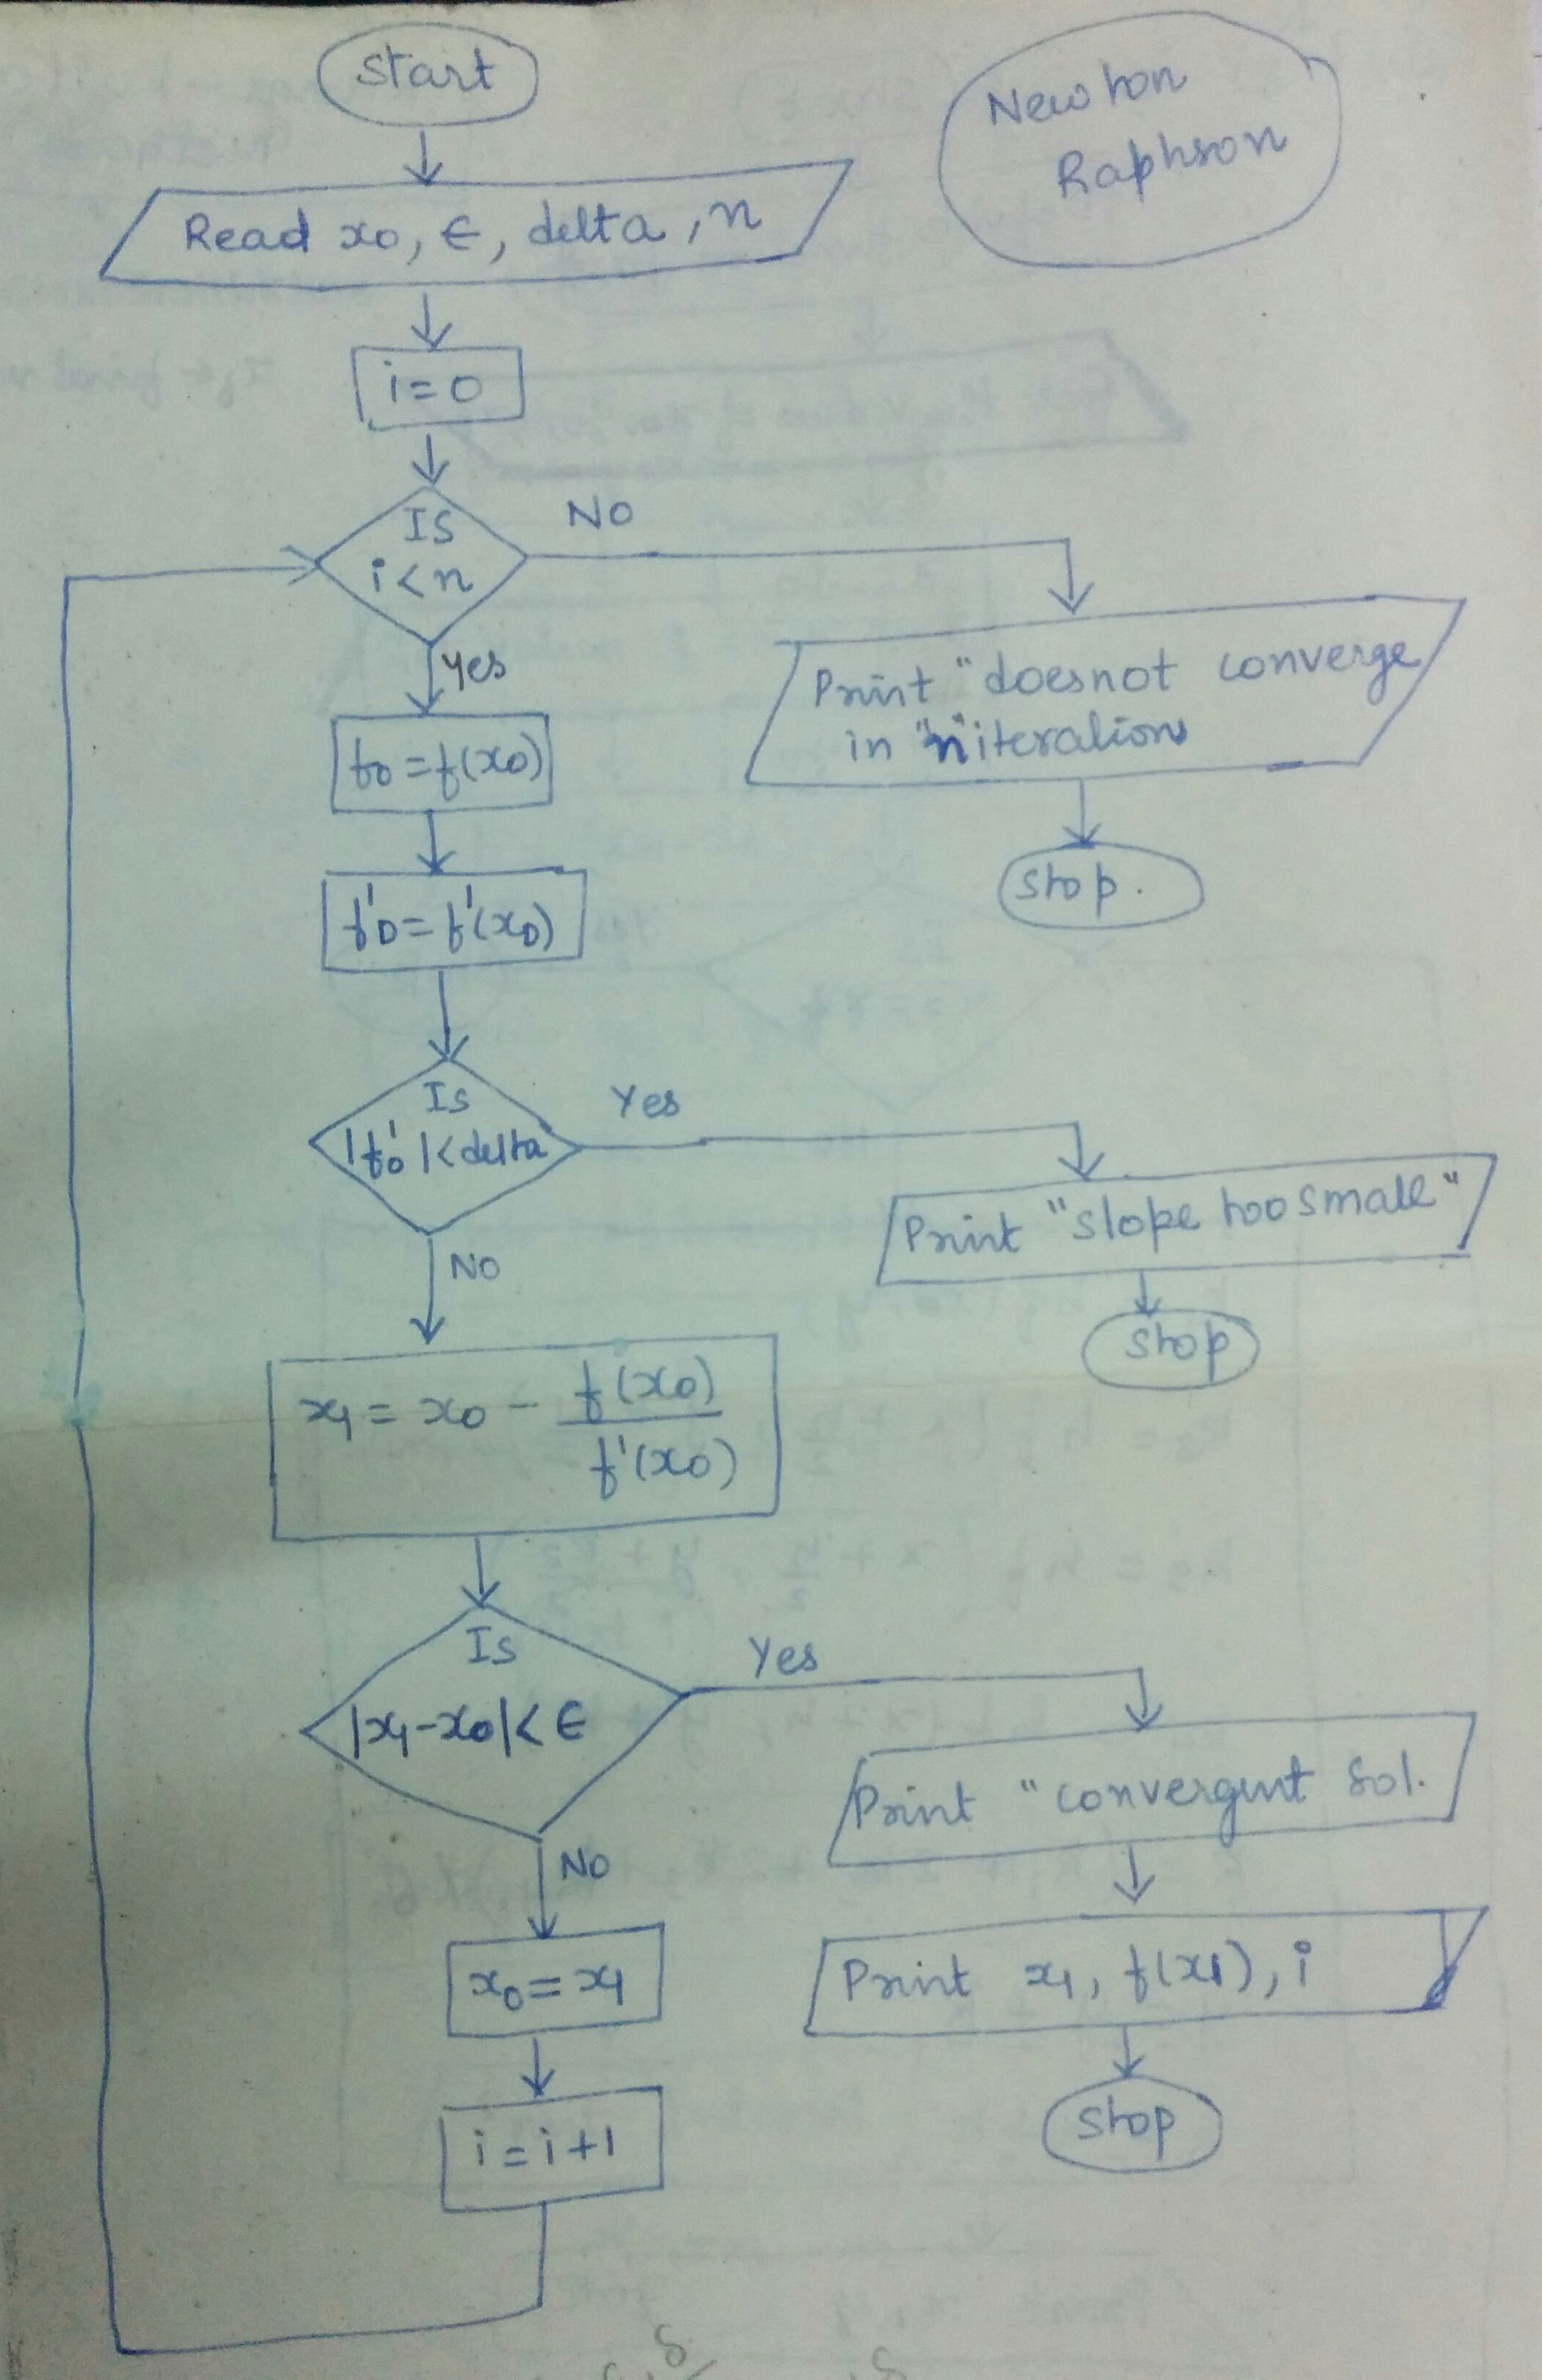 Start
Newton
Raphson
Read x0, ∈, delta, n
i=0
IS
i<n
NO
Yes
Print "doesnot converge
in "n" iterations
f0 = f(x0)
Stop.
f'0 = f'(x0)
Is
|f'0|<delta
Yes
Print "slope too small"
NO
Stop
x1 = x0 - f(x0)
f'(x0)
Is
|x1-x0|< ∈
Yes
Print "convergent sol.
NO
x0 = x1
Print x1, f(x1), i
i = i+1
Stop